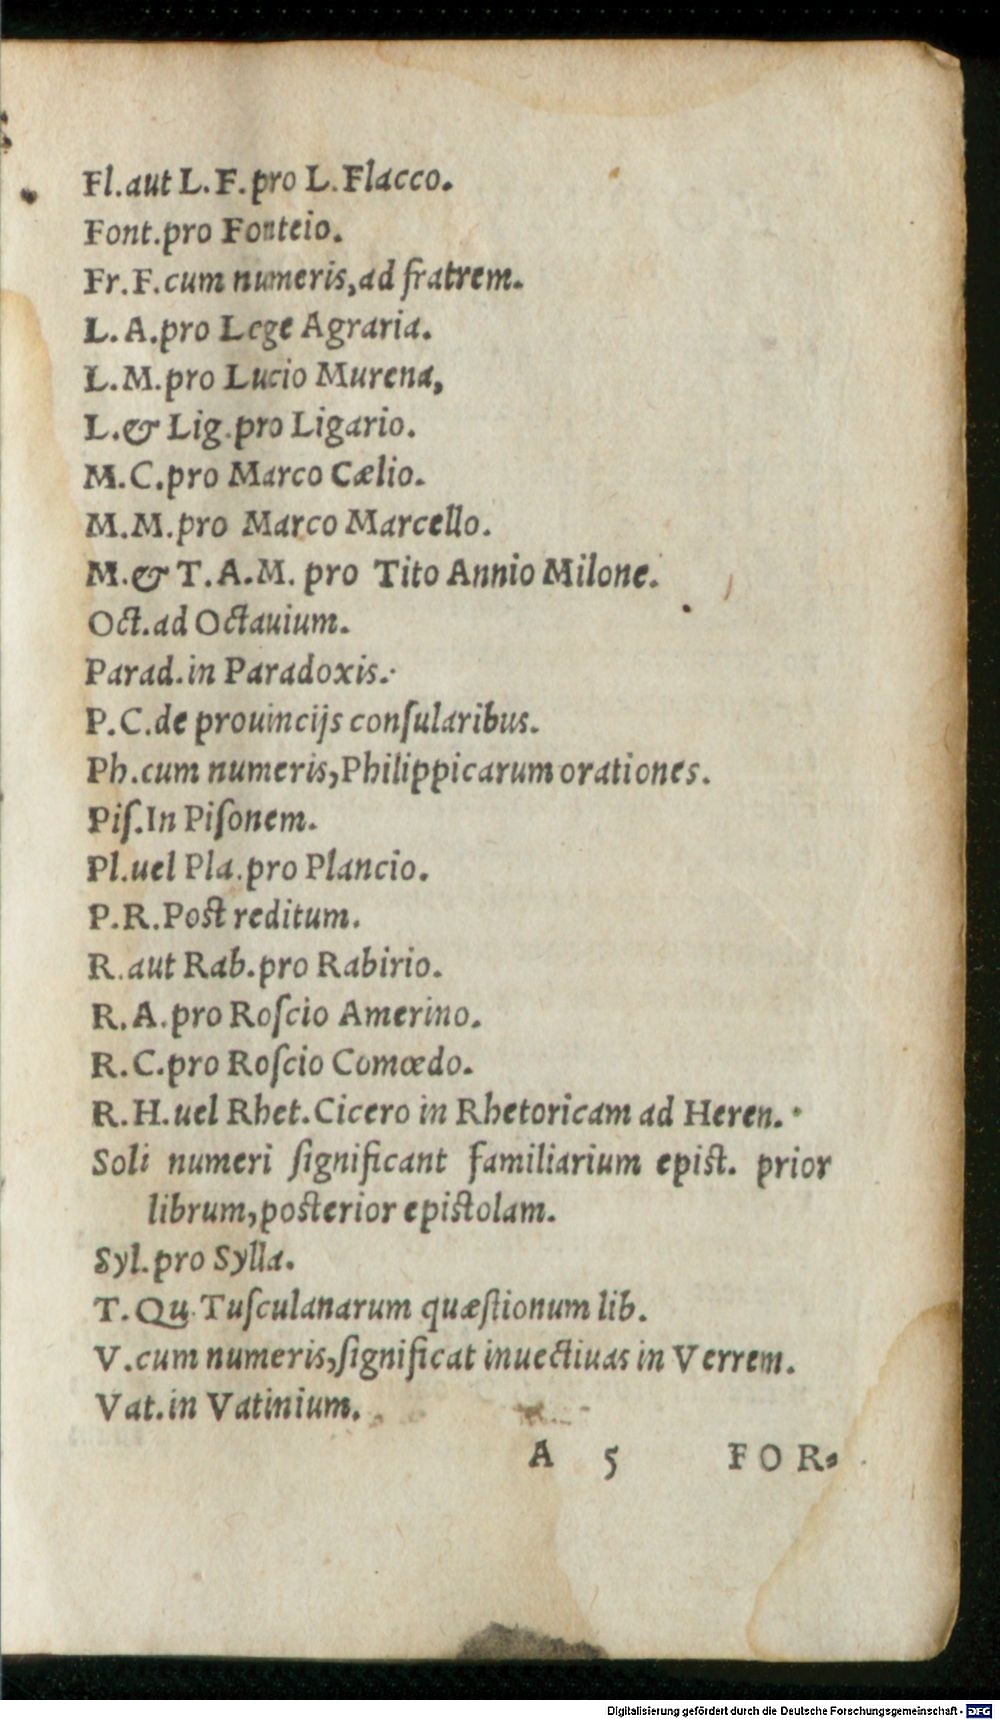 Fl.aut L.F.pro L.Flacco.
Font.pro Fonteio.
Fr.F.cum numeris,ad fratrem.
L.A.pro Lege Agraria.
L.M.pro Lucio Murena,
L.& Lig.pro Ligario.
M.C.pro Marco Cælio.
M.M.pro Marco Marcello.
M.& T.A.M. pro Tito Annio Milone.
Oct.ad Octauium.
Parad.in Paradoxis.
P.C.de prouincijs conſularibus.
Ph.cum numeris,Philippicarum orationes.
Piſ.In Piſonem.
Pl.uel Pla.pro Plancio.
P.R.Post reditum.
R.aut Rab.pro Rabirio.
R.A.pro Roſcio Amerino.
R.C.pro Roſcio Comœdo.
R.H.uel Rhet.Cicero in Rhetoricam ad Heren.
Soli numeri ſignificant familiarium epist. prior
librum,posterior epistolam.
Syl.pro Sylla.
T.Qu.Tuſculanarum quæſtionum lib.
V.cum numeris,ſignificat inuectiuas in Verrem.
Vat.in Vatinium.
A 5 FOR-
Digitalisierung gefördert durch die Deutsche Forschungsgemeinschaft - DFG